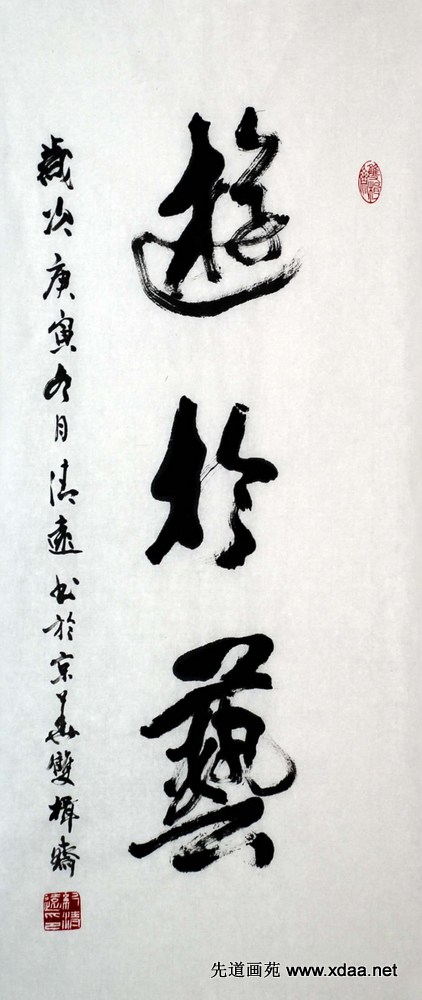 遊於藝
歲次庚寅冬月清遠書於京華雙樨齋
先道画苑 www.xdaa.net